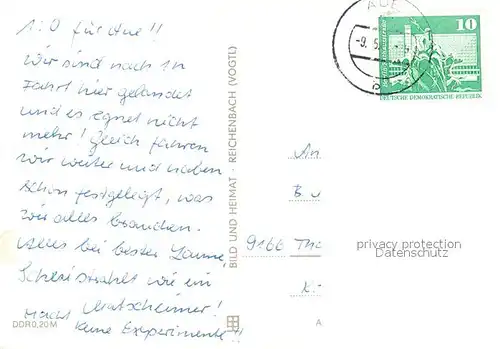 1:0 für Aue!!
Wir sind nach 1h
Fahrt hier gelandet
und es regnet nicht
mehr! Gleich fahren
wir weiter und haben
schon festgelegt, was
wir alles brauchen.
Alles bei bester Laune,
strahlt wie ein
Macht
keine Experimente!!
DDR 0,20 M
BILD UND HEIMAT · REICHENBACH (VOGTL)
AUE
-9.
10
DEUTSCHE DEMOKRATISCHE REPUBLIK
An
B
9166 Th
privacy protection
Datenschutz
K
A